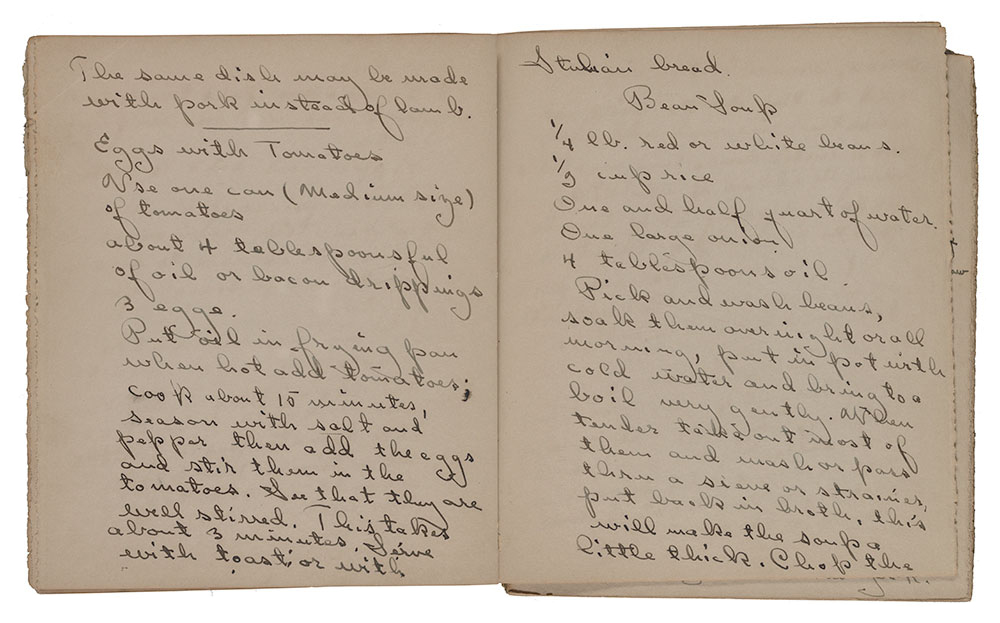 The same dish may be made
with pork instead of lamb.
Eggs with Tomatoes
Use one can (Medium size)
of tomatoes
about 4 tablespoonsful
of oil or bacon drippings
3 eggs.
Put oil in frying pan
when hot add tomatoes;
cook about 15 minutes,
season with salt and
pepper then add the eggs
and stir them in the
tomatoes. See that they are
well stirred. This takes
about 3 minutes. Serve
with toast or with
Italian bread.
Bean Soup
1/4 lb. red or white beans.
1/3 cup rice
One and half quart of water.
One large onion
4 tablespoons oil
Pick and wash beans,
soak them over night or all
morning, put in pot with
cold water and bring to a
boil very gently. When
tender take out most of
them and mash or pass
thru a sieve or strainer,
put back in broth, this
will make the soup a
little thick. Chop the